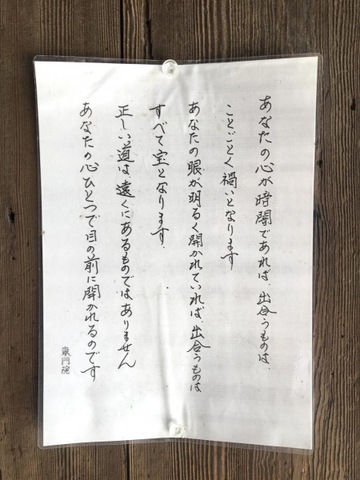 あなたの心が暗闇であれば、出合うものは、
ことごとく禍いとなります
あなたの眼が明るく開かれていれば、出合うものは
すべて宝となります、
正しい道は遠くにあるものではありません
あなたの心ひとつで目の前に開かれるのです
竜門院